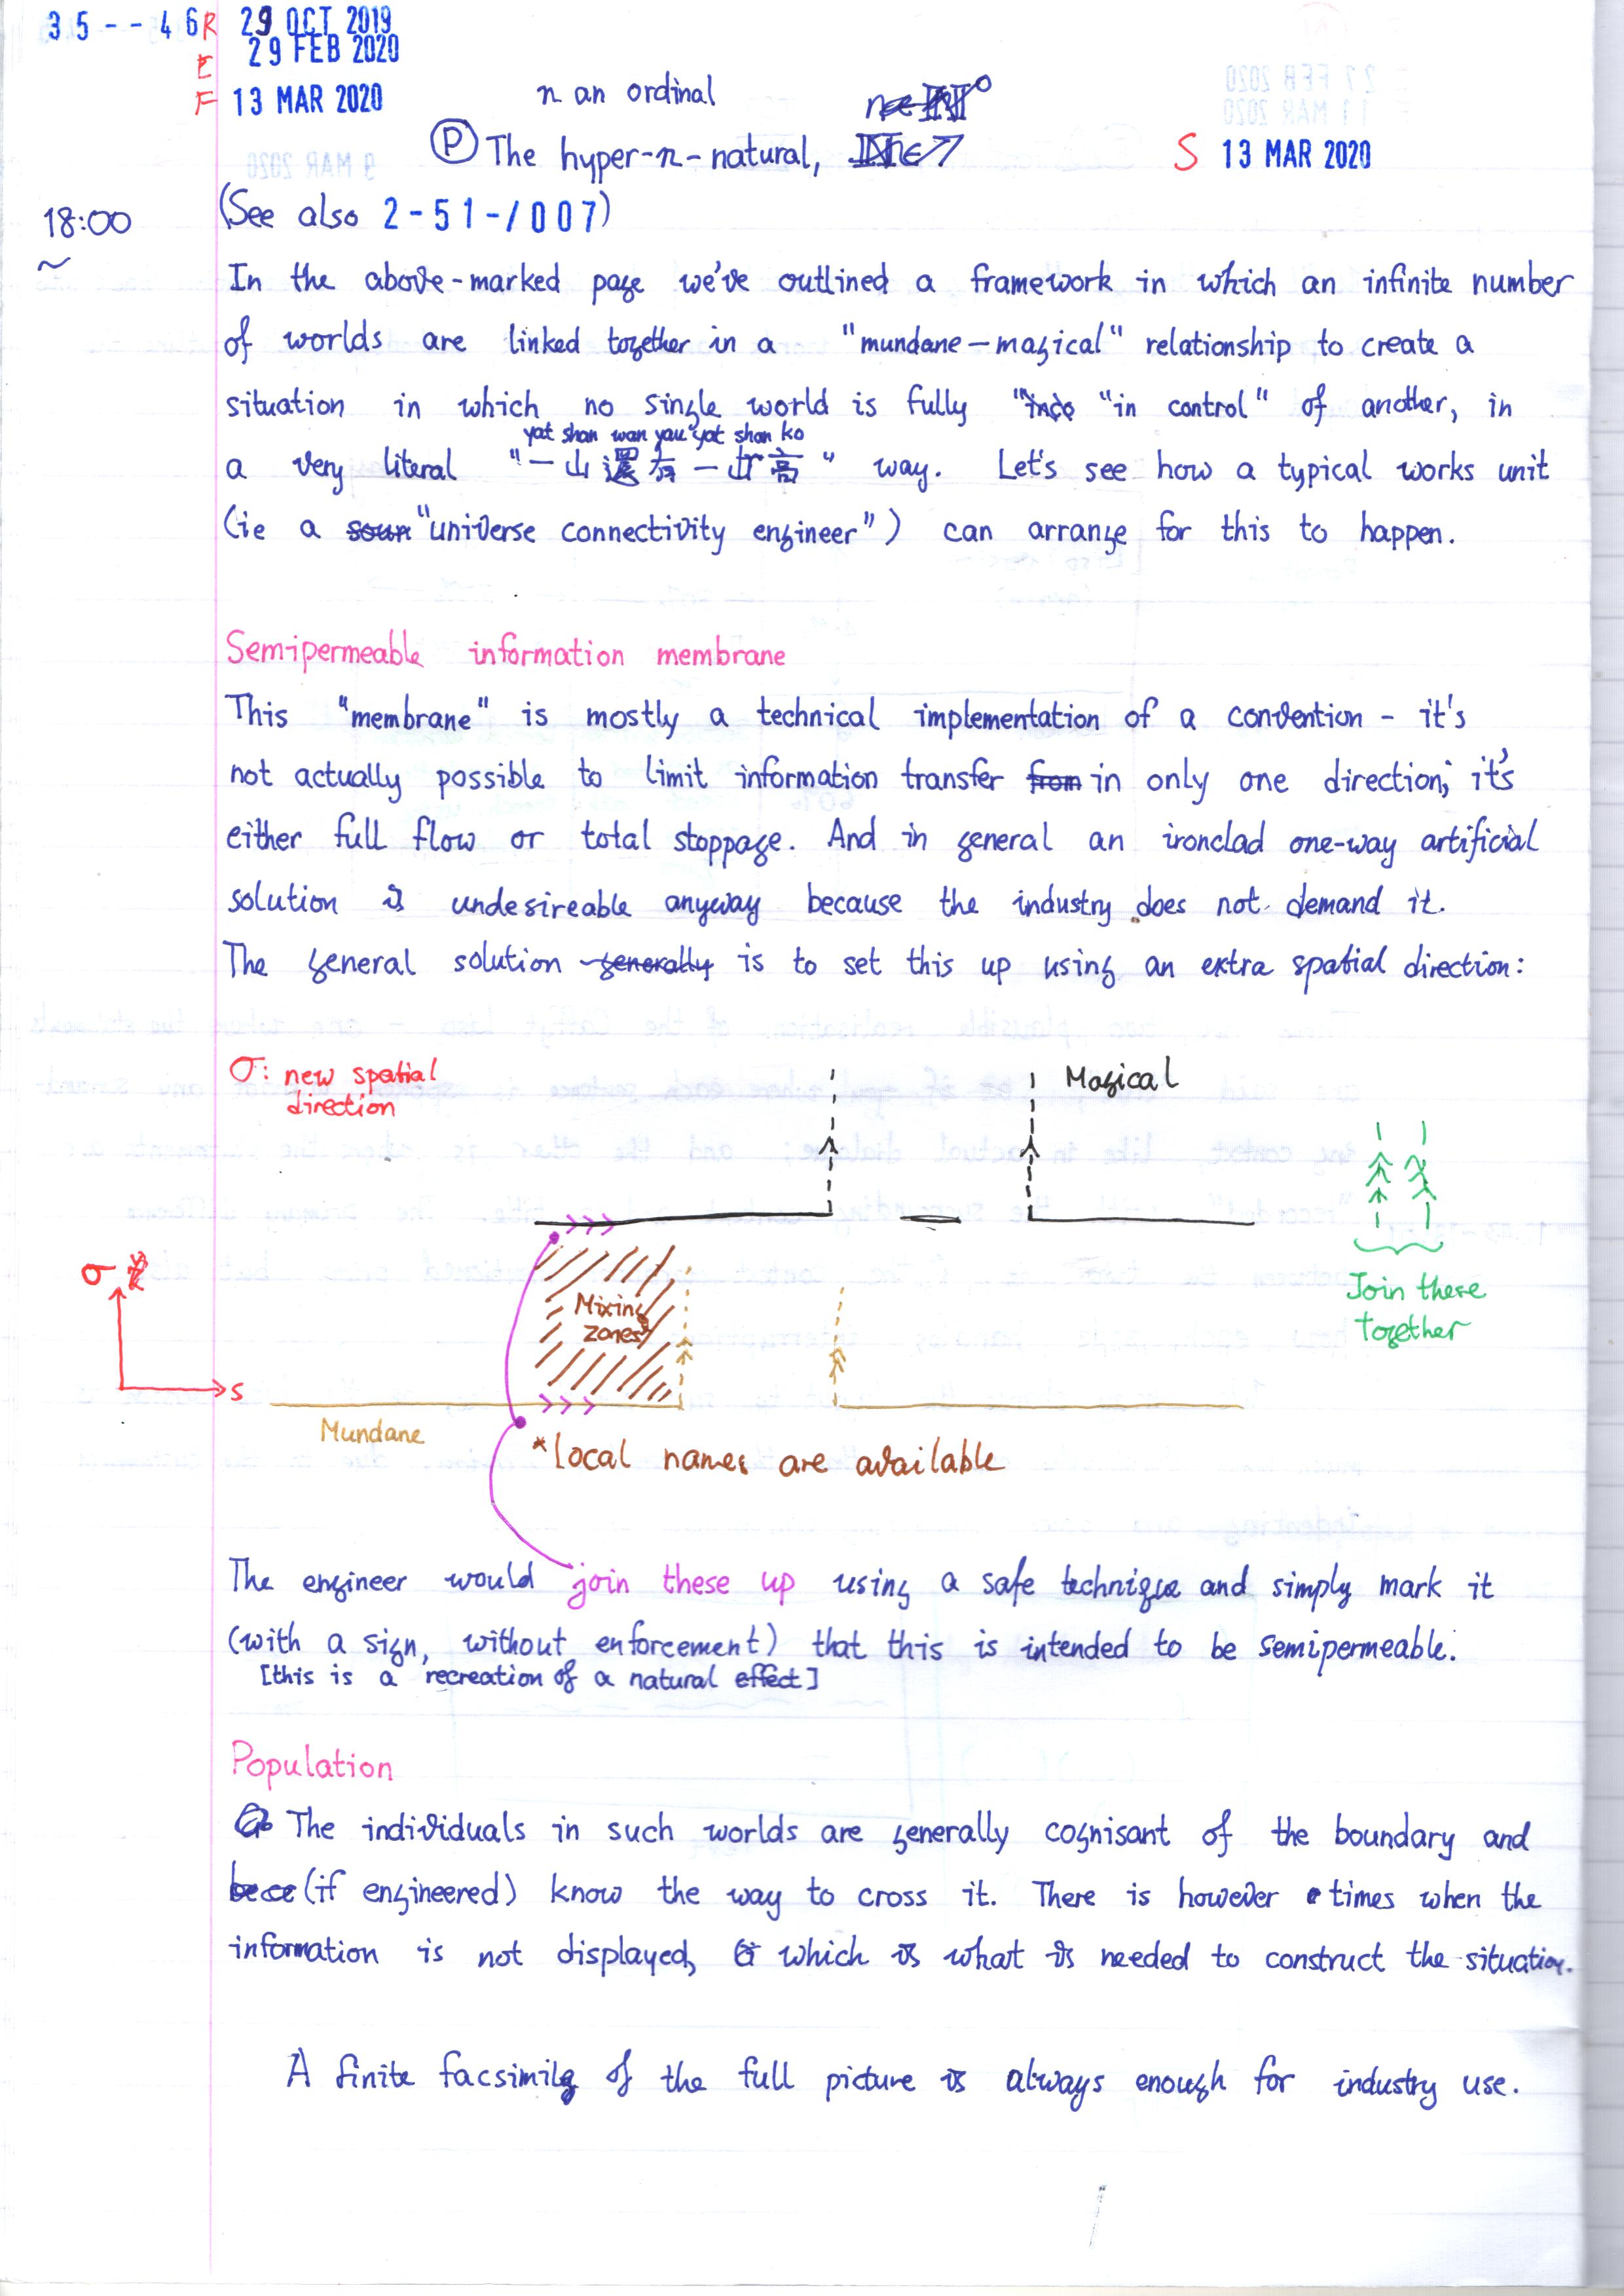 35--46 R 29 OCT 2019
E 29 FEB 2020
F 13 MAR 2020
n an ordinal
Ⓟ The hyper-n-natural,
S 13 MAR 2020
18:00
~
(See also 2-51-/007)
In the above-marked page we've outlined a framework in which an infinite number
of worlds are linked together in a "mundane-magical" relationship to create a
situation in which no single world is fully "in control" of another, in
yat shan wan yau yat shan ko
a very literal "一山還有一山高" way. Let's see how a typical works unit
(ie a "universe connectivity engineer") can arrange for this to happen.
Semipermeable information membrane
This "membrane" is mostly a technical implementation of a convention - it's
not actually possible to limit information transfer from in only one direction; it's
either full flow or total stoppage. And in general an ironclad one-way artificial
solution is undesireable anyway because the industry does not demand it.
The general solution generally is to set this up using an extra spatial direction:
σ: new spatial
direction
Magical
σ
s
Mixing
zones*
Join these
together
Mundane
*local names are available
The engineer would join these up using a safe technique and simply mark it
(with a sign, without enforcement) that this is intended to be semipermeable.
[this is a recreation of a natural effect]
Population
The individuals in such worlds are generally cognisant of the boundary and
(if engineered) know the way to cross it. There is however times when the
information is not displayed, which is what is needed to construct the situation.
A finite facsimile of the full picture is always enough for industry use.